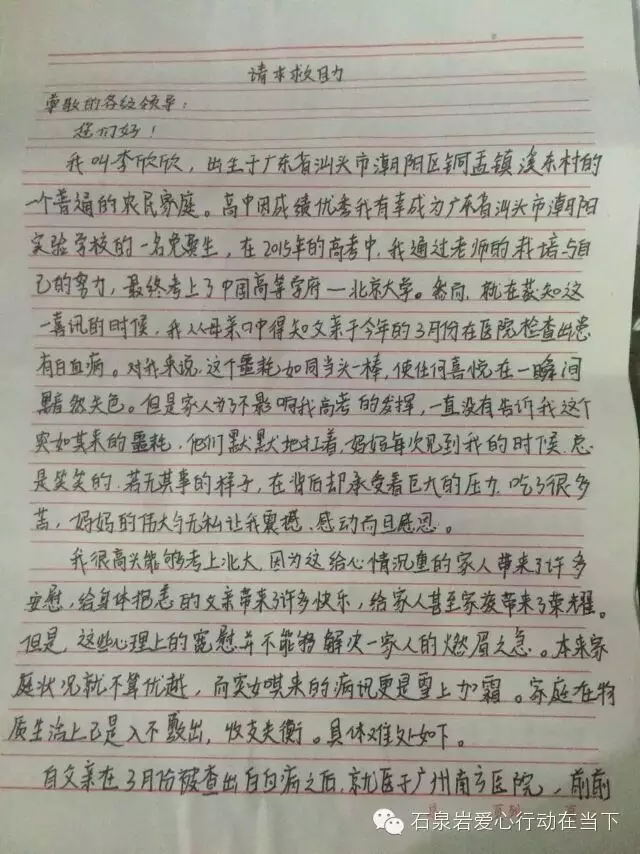 请求救助
尊敬的各级领导：
您们好！
我叫李欣欣，出生于广东省汕头市潮阳区铜盂镇溪东村的
一个普通的农民家庭。高中因成绩优秀我有幸成为广东省汕头市潮阳
实验学校的一名免费生，在2015年的高考中，我通过老师的栽培与自
己的努力，最终考上了中国高等学府—北京大学。然而，就在获知这
一喜讯的时候，我从母亲口中得知父亲于今年的3月份在医院检查出患
有白血病。对我来说，这个噩耗如同当头一棒，使任何喜悦在一瞬间
黯然失色。但是家人为了不影响我高考的发挥，一直没有告诉我这个
突如其来的噩耗，他们默默地扛着，妈妈每次见到我的时候，总
是笑笑的，若无其事的样子，在背后却承受着巨大的压力，吃了很多
苦，妈妈的伟大与无私让我震撼、感动而且感恩。
我很高兴能够考上北大，因为这给心情沉重的家人带来了许多
安慰，给身体抱恙的父亲带来了许多快乐，给家人甚至家族带来了荣耀。
但是，这些心理上的宽慰并不能够解决一家人的燃眉之急。本来家
庭状况就不算优越，而突如其来的病讯更是雪上加霜。家庭在物
质生活上已是入不敷出，收支失衡。具体难处如下。
自父亲在3月份被查出白血病之后，就医于广州南方医院，前前
石泉岩爱心行动在当下